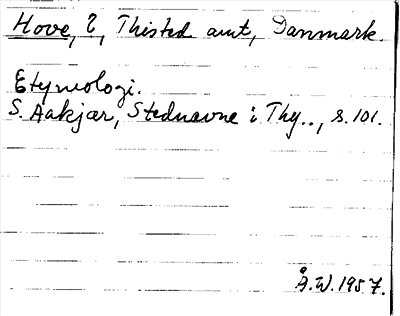 Hove, ?, Thisted amt, Danmark.
Etymologi.
S. Aakjær, Stednavne i Thy.., s. 101.
Å.W. 1957.